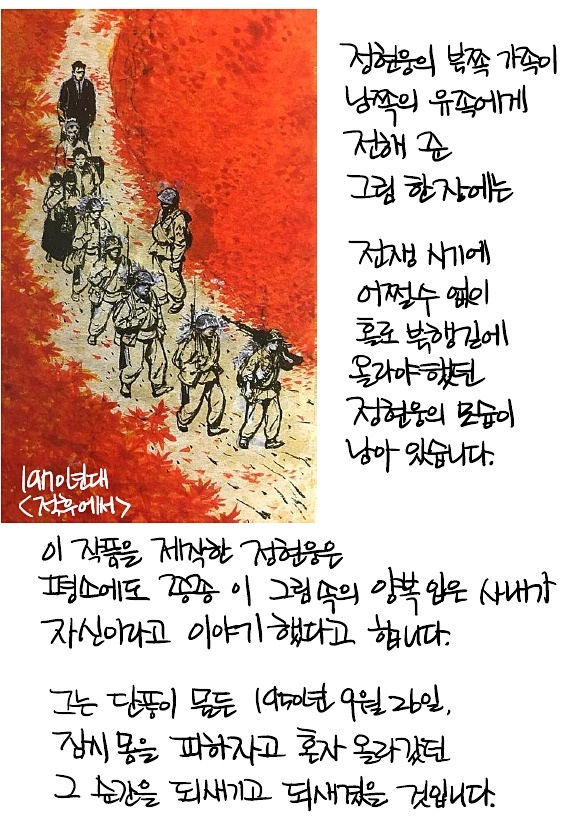 정현웅의 북쪽 가족이
남쪽의 유족에게
전해 준
그림 한 장에는
전쟁 시기에
어쩔수 없이
홀로 북행길에
올라야했던
정현웅의 모습이
남아 있습니다.
1970년대
<적후에서>
이 작품을 제작한 정현웅은
평소에도 종종 이 그림 속의 양복 입은 사내가
자신이라고 이야기 했다고 합니다.
그는 단풍이 물든 1950년 9월 26일,
잠시 몸을 피하자고 혼자 올라갔던
그 순간을 되새기고 되새겼을 것입니다.